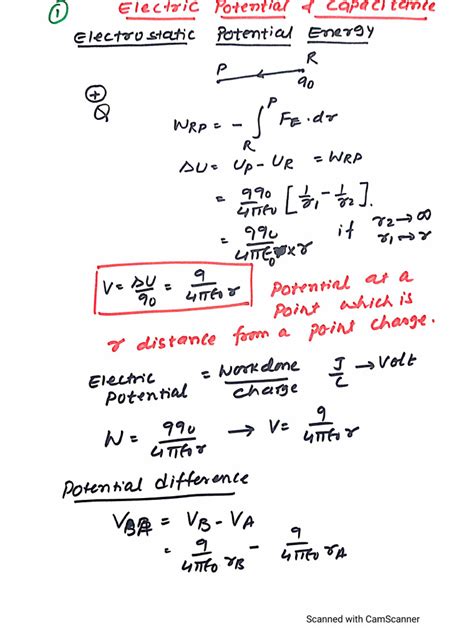 ① Electric Potential & Capacitance
Electrostatic Potential Energy
P R
q0
+
Q
WRP = - ∫RP FE.dr
ΔU = UP - UR = WRP
= qq0/4πε0 [1/r1 - 1/r2].
= qq0/4πε0 × r if r2→∞ r1→r
V = ΔU/q0 = q/4πε0r Potential at a
Point which is
r distance from a point charge.
Electric Potential = Workdone/charge J/C → Volt
W = qq0/4πε0r → V = q/4πε0r
Potential difference
VBA = VB - VA
= q/4πε0rB - q/4πε0rA
Scanned with CamScanner